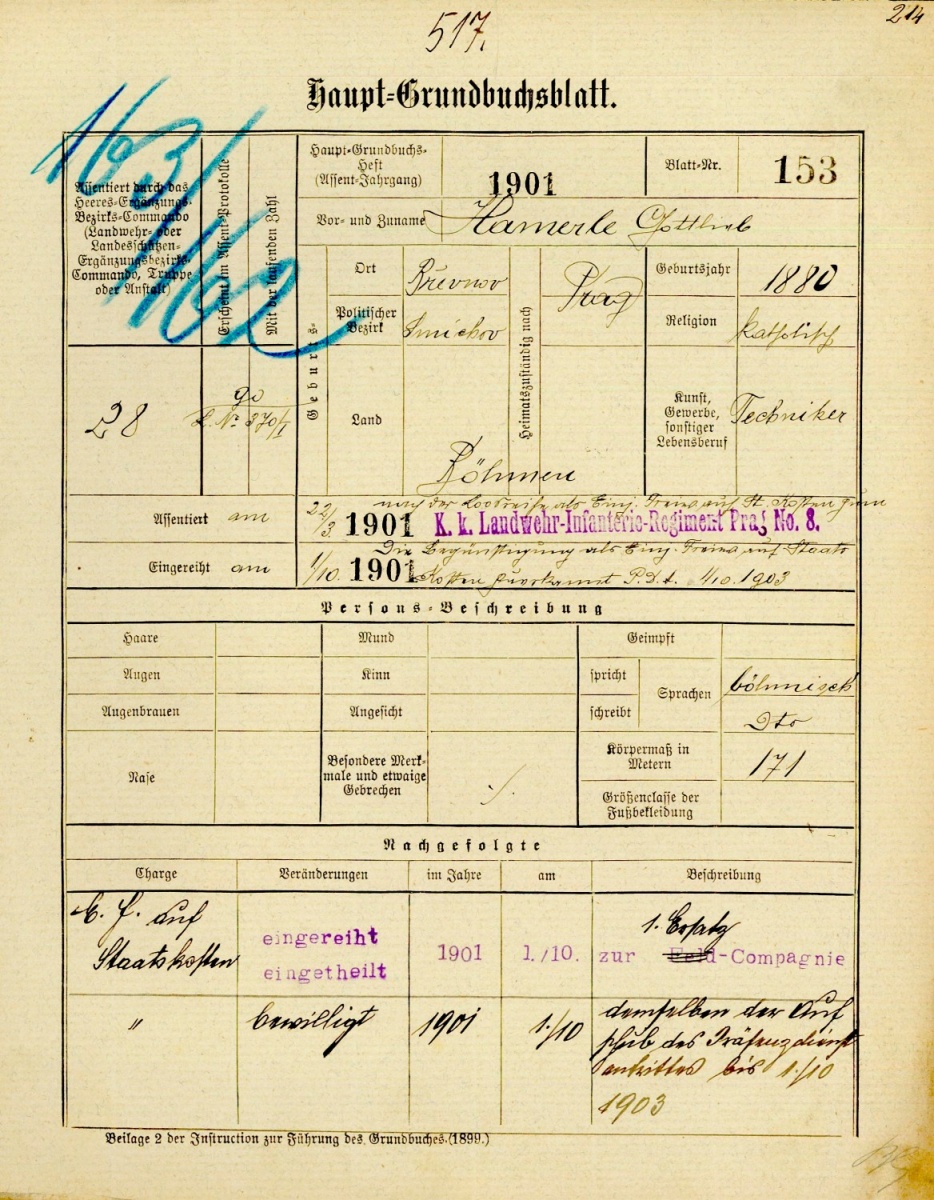 517.
214
Haupt-Grundbuchsblatt.
163/
162
Assentiert durch das
Heeres-Ergänzungs-
Bezirks-Commando
(Landwehr- oder
Landesschützen-
Ergänzungsbezirks-
Commando, Truppe
oder Anstalt)
Erscheint im Assent-Protokolle
Mit der laufenden Zahl
Haupt-Grundbuchs-
Heft
(Assent-Jahrgang)
1901
Blatt-Nr.
153
Vor- und Zuname
Hamerle Gottlieb
Geburts-
Ort
Břevnov
Politischer
Bezirk
Smichov
Land
Böhmen
Heimatszuständig nach
Prag
Geburtsjahr
1880
Religion
katholisch
Kunst,
Gewerbe,
sonstiger
Lebensberuf
Techniker
28
90
L. № 370/I
Assentiert am
22/3. 1901
nach der Losreihe als Einj. Freiw. auf St. Kosten zum
K. k. Landwehr-Infanterie-Regiment Prag No. 8.
Eingereiht am
1/10. 1901
Die Begünstigung als Einj. Freiw. auf Staats
Kosten zuerkannt P.D.t. 1/10.1903
Persons-Beschreibung
Haare
Mund
Geimpft
Augen
Kinn
spricht
Sprachen
böhmisch
Augenbrauen
Angesicht
schreibt
Dto
Nase
Besondere Merk-
male und etwaige
Gebrechen
./.
Körpermaß in
Metern
171
Größenclasse der
Fußbekleidung
Nachgefolgte
Charge
Veränderungen
im Jahre
am
Beschreibung
E. F. auf
Staatskosten
eingereiht
eingetheilt
1901
1./10.
1. Ersatz
zur Feld-Compagnie
"
bewilligt
1901
1./10
demselben der Auf
schub des Präsenzdienst
antrittes bis 1./10
1903
Beilage 2 der Instruction zur Führung des Grundbuches (1899.)